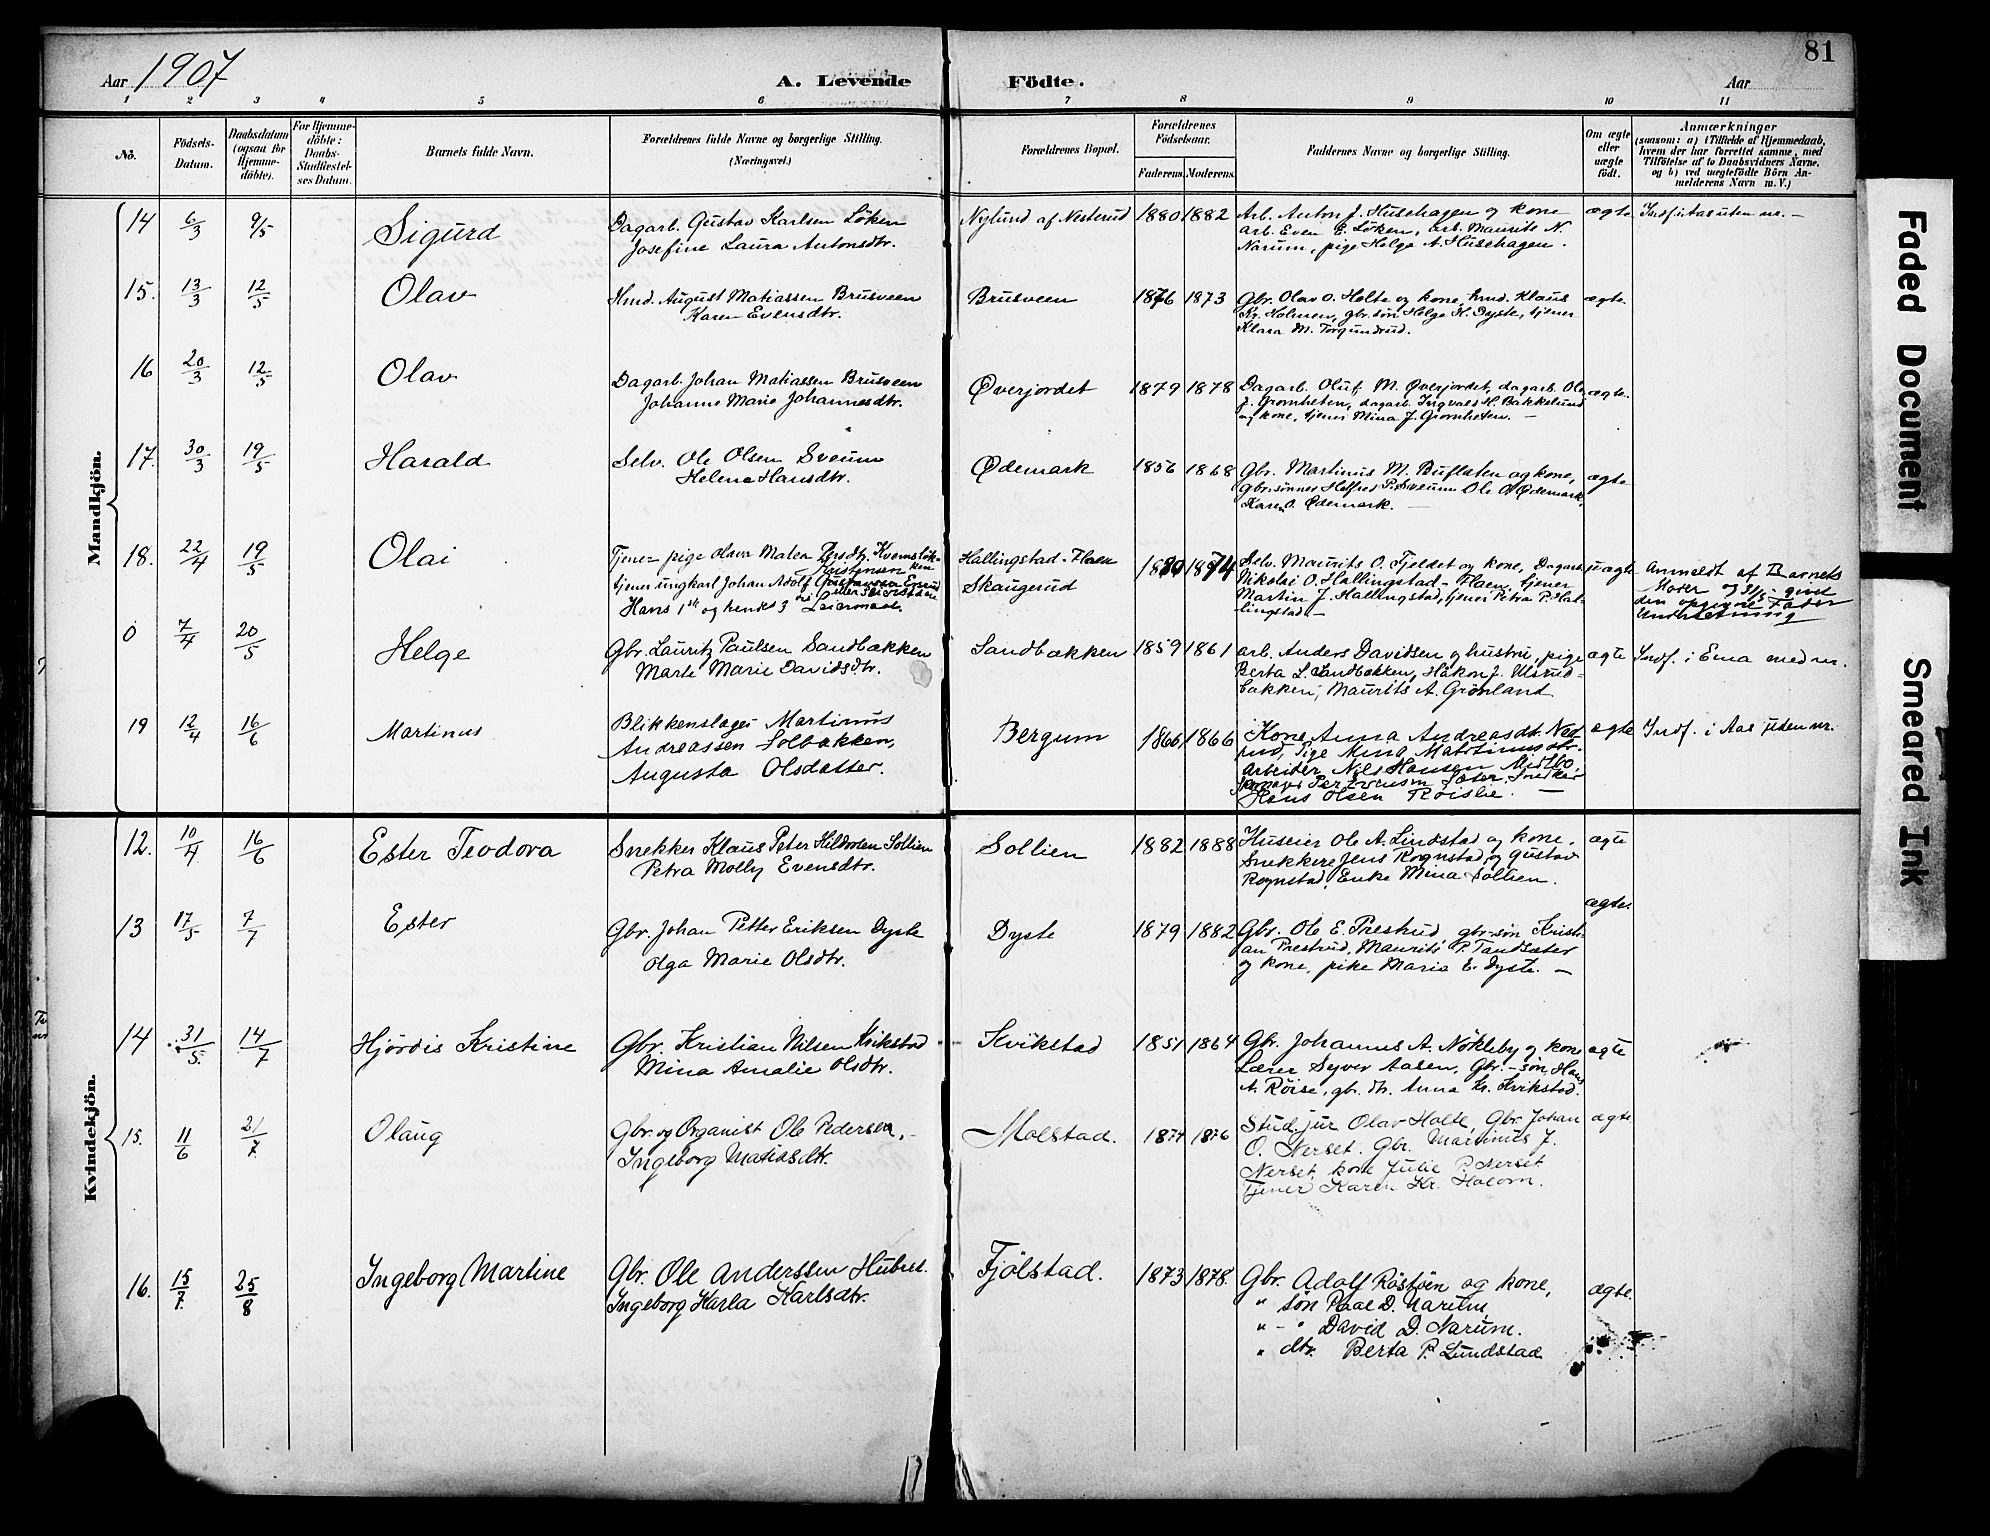 81
Aar 1907
A. Levende
Födte.
Aar
1 2 3 4 5 6 7 8 9 10 11
No.
Födsels-Datum.
Daabsdatum (ogsaa for Hjemme-döbte).
For Hjemme-döbte: Daabs-Stadfæstel-ses Datum.
Barnets fulde Navn.
Forældrenes fulde Navne og borgerlige Stilling.
(Næringsvei.)
Forældrenes Bopæl.
Forældrenes Födselsaar.
Faderens. Moderens.
Faddernes Navne og borgerlige Stilling.
Om ægte eller uægte födt.
Anmærkninger
(saasom: a) i Tilfælde af Hjemmedaab,
hvem der har forrettet samme, med
Tilföielse af to Daabsvidners Navne,
og b) ved uægtefödte Börn An-
melderens Navn m. V.)
Mandkjön.
14 6/3 9/5 Sigurd
Dagarb. Gustav Karlsen Løken
Josefine Laura Antonsdtr.
Nylund af Nesterud 1880 1882
Arb. Anton J. Husehagen og kone
arb. Even E. Løken, arb. Maurits N.
Narum, pige Helga A. Husehagen.
ægte
Indf. i Aas uten nr. -
15. 13/3 12/5 Olav
Hmd. August Matiassen Brusveen
Karen Evensdtr.
Brusveen 1876 1873
Gbr. Olav O. Holte og kone, hmd. Klaus
Kr. Holmen, gbr. søn Helge H. Dyste, tjener
Klara M. Torgundrud.
ægte
16 20/3 12/5 Olav
Dagarb. Johan Matiassen Brusveen
Johanne Marie Johannesdtr.
Øverjordet 1879 1878
Dagarb. Oluf M. Øverjordet, dagarb. Ole
J. Grønheten, dagarb. Ingvald H. Bakkelund
og kone, tjener Mina J. Grønheten. -
ægte.
17. 30/3 19/5 Harald
Selv. Ole Olsen Sveum
Helene Hansdtr.
Ødemark 1856 1868
Gbr. Martinus M. Buflaten og kone,
gbr. sønner Helfred P. Sveum Ole O. Ødemark,
Karen O. Ødemark. -
ægte
18. 22/4 19/5 Olai
Tjene- pige Olava Matea
tjener ungkarl Johan Adolf
Hans 1ste og hendes 3 Leiermaal.
Hallingstad-Flaen
Skaugerud
1874
Selv. Maurits O. Fjeldet og kone, Dagarb.
Nikolai O. Hallingstad-Flaen, tjener
Martin J. Hallingstad, tjener Petra P. Hal-
lingstad -
uægte
Anmeldt af Barnets
Moder og givet
den opgivne Fader
Underretning
0 7/4 20/5 Helge
Gbr. Lauritz Paulsen Sandbakken
Marte Marie Davidsdtr.
Sandbakken 1859 1861
arb. Anders Davidsen og hustru, pige
Berta L. Sandbakken, Håkon J. Ulsrud-
bakken, Maurits A. Grønland
ægte
Indf. i Eina med nr.
19 12/4 16/6 Martinus
Blikkenslager Martinus
Andreassen Solbakken,
Augusta Olsdatter.
Bergum 1866 1866
Kone Anna Andreasdt.
Pige Mina Martinusdtr.
Arbeider Nils Hansen Midtbø,
Hans Olsen Røislie. -
ægte
Indf. i Aas uden nr.
Kvindekjön.
12. 10/4 16/6 Ester Teodora
Snekker Klaus Peter Hildrolen Sollien
Petra Molly Evensdtr.
Sollien 1882 1888
Huseier Ole A. Lindstad og kone,
Snekkere Jens Rognstad og Gustav
Rognstad, Enke Mina Sollien.
ægte
13 17/5 7/7 Ester
Gbr. Johan Petter Eriksen Dyste
Olga Marie Olsdtr.
Dyste 1879 1882
Gbr. Ole E. Prestrud, gbr-søn Kristi-
an Prestrud, Maurits P. Tandsæter
og kone, pike Maria E. Dyste. -
ægte.
14 31/5. 14/7 Hjørdis Kristine
Gbr. Kristian Nilsen Kvikstad
Mina Amalie Olsdtr.
Kvikstad 1851 1864
Gbr. Johannes A. Nøkleby og kone
Lærer Syver Aasen, Gbr.-søn Hans
A. Røise, gbr. dtr. Anna Kr. Kvikstad.
ægte
15. 11/6 21/7 Olaug
Gbr. og Organist Ole Pedersen,
Ingeborg Matiasdtr.
Molstad. 1874 1876
Stud. jur Olav Holte, Gbr. Johan
O. Nerset. Gbr. Martinus J.
Nerset, kone Julie P. Nerset
Tjener Karen Kr.
ægte
16. 15/7. 25/8 Ingeborg Martine
Gbr. Ole Anderssen Hubret.
Ingeborg Karla Karlsdtr.
Fjölstad. 1873 1878.
Gbr. Adolf Röstöen og kone,
" søn Paal D. Narum
" - " David D. Narum.
" dtr. Berta P. Lundstad
ægte.
Faded Document
Smeared Ink